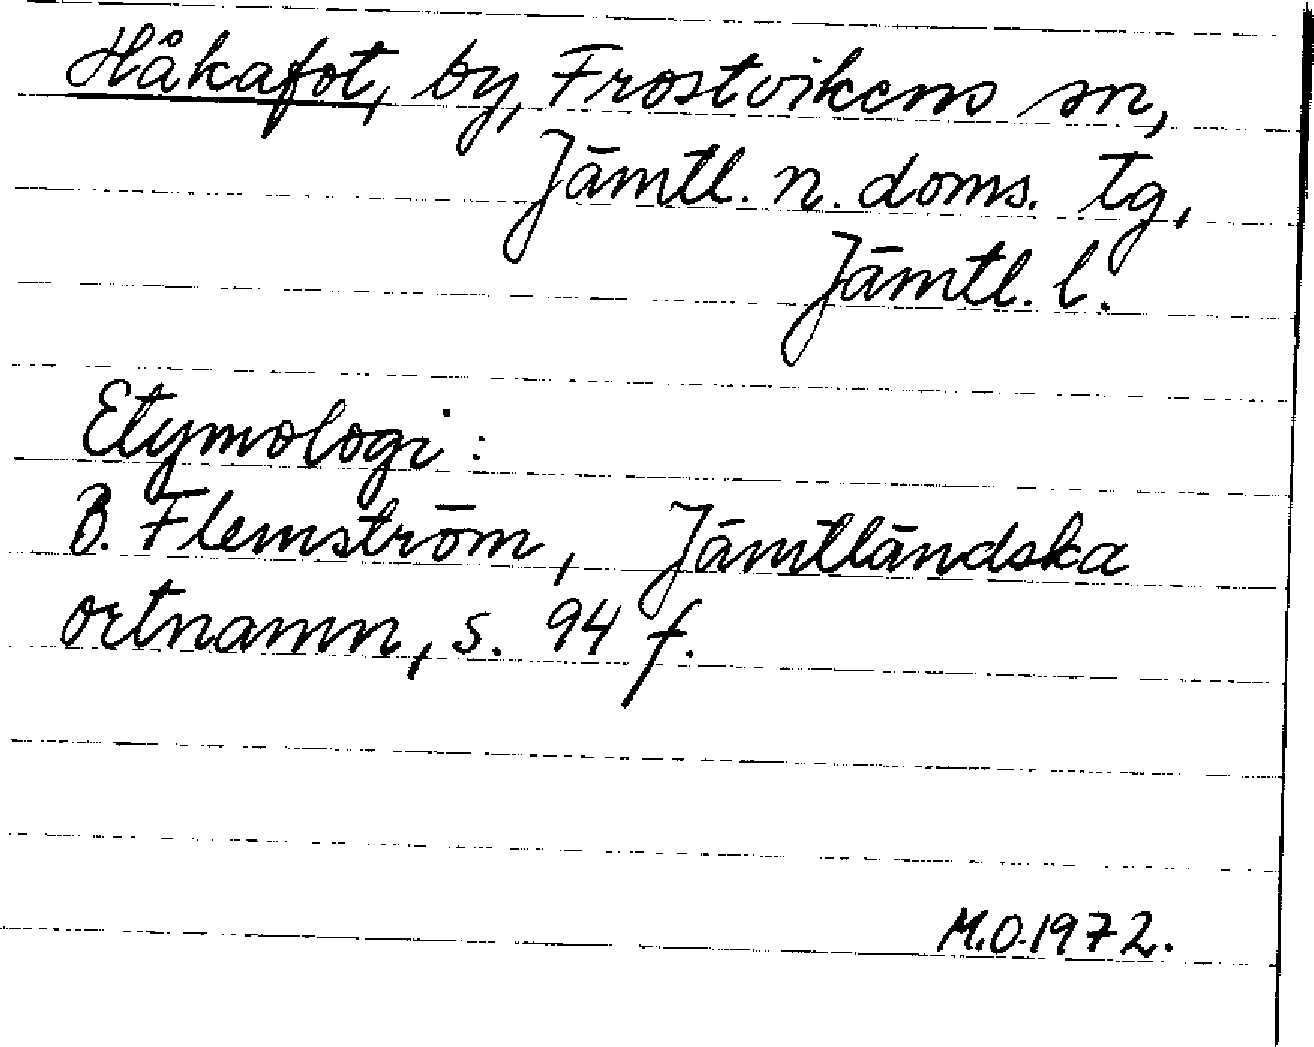 Håkafot, by, Frostvikens sn,
Jämtl. n. doms. tg,
Jämtl. l.
Etymologi:
B. Flemström, Jämtländska
ortnamn, s. 94 f.
M.O. 1972.